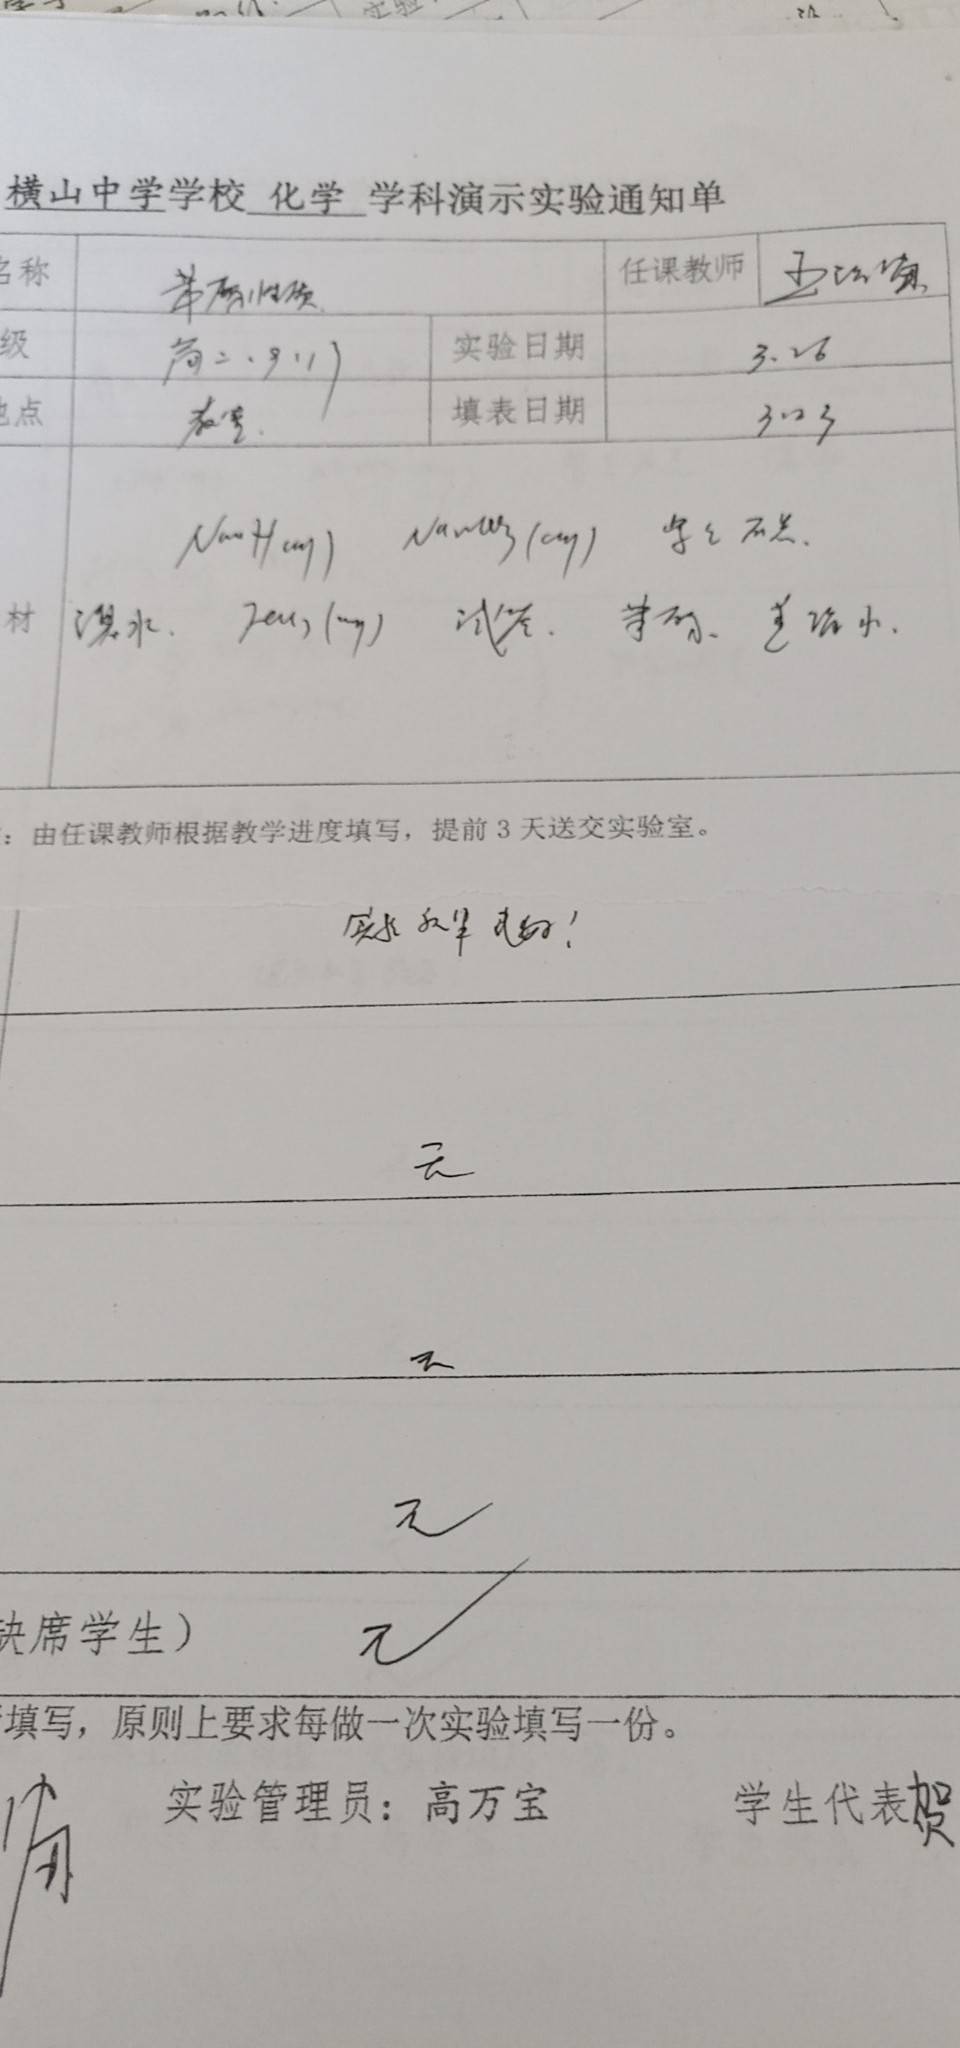 横山中学学校 化学 学科演示实验通知单
名称 苯酚性质 任课教师
级 高二. 9.11 实验日期 3.26
地点 教室. 填表日期 3.23
NaOH(aq) Na2CO3(aq) 紫色石蕊.
材 溴水. FeCl3(aq) 试管. 苯酚. 蒸馏水.
：由任课教师根据教学进度填写，提前 3 天送交实验室。
实验效果良好！
无
无
无
缺席学生） 无
填写，原则上要求每做一次实验填写一份。
实验管理员：高万宝 学生代表贺